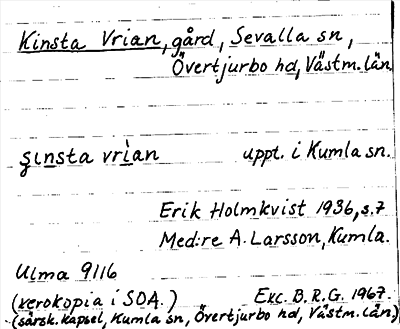 Kinsta Vrian, gård, Sevalla sn,
Övertjurbo hd, Västm. län.
şınsta vrìan uppt. i Kumla sn.
Erik Holmkvist 1936, s. 7
Med:re A. Larsson, Kumla.
Ulma 9116
(xerokopia i SOA.) Exc. B.R.G. 1967.
(särsk. kapsel, Kumla sn, Övertjurbo hd, Västm. län.)